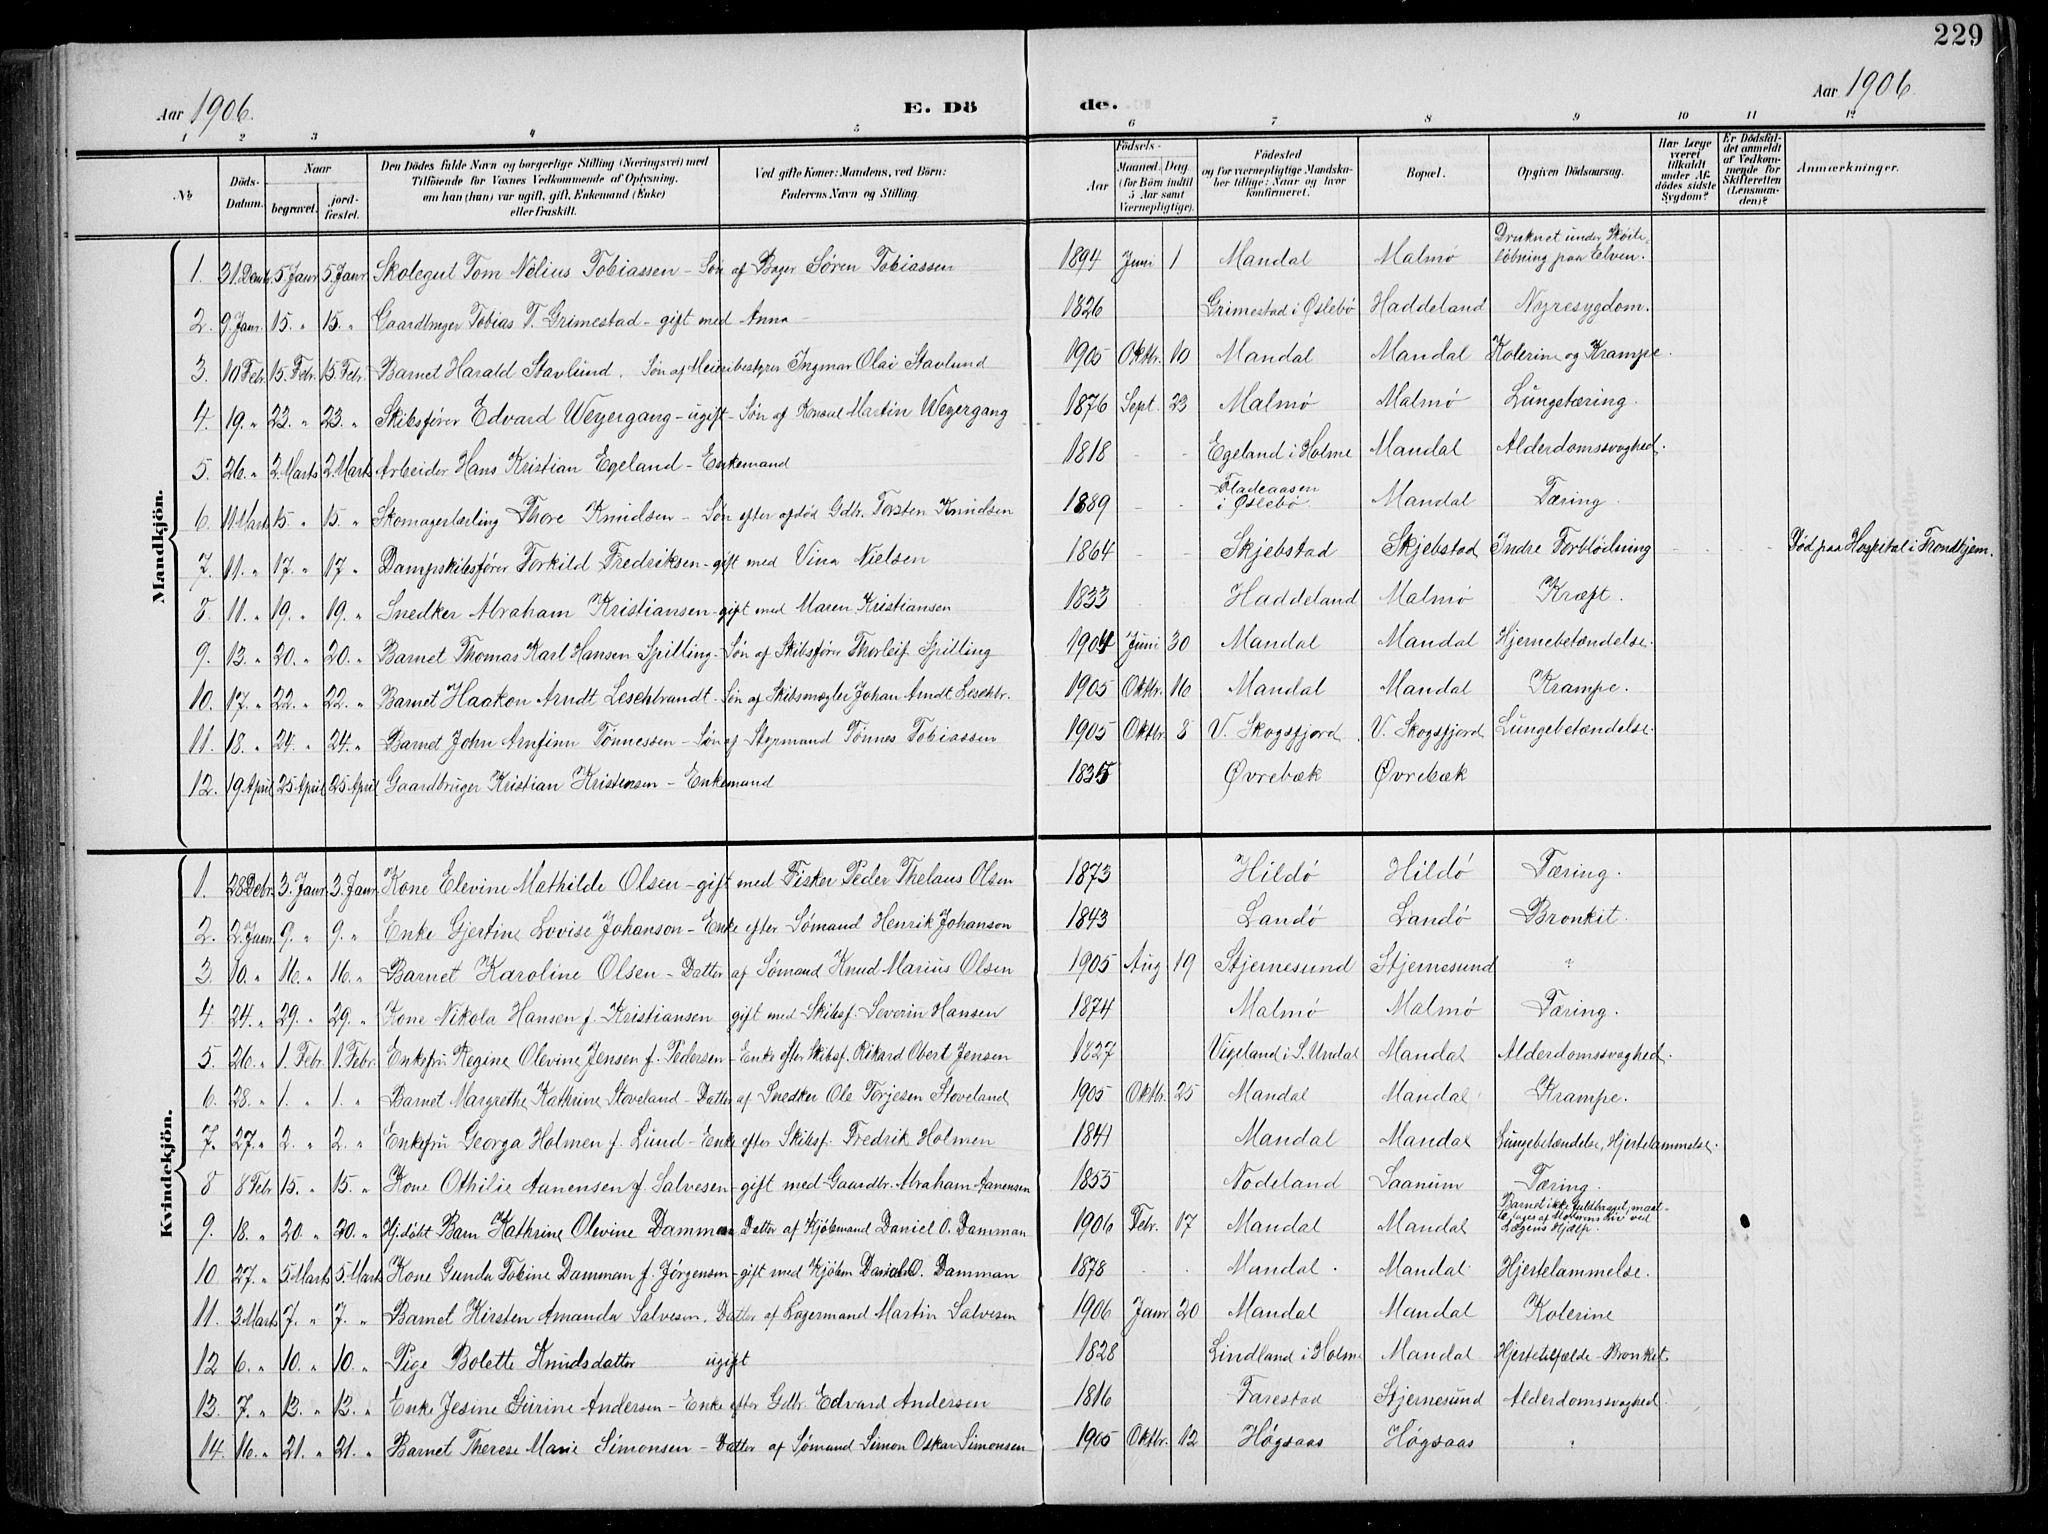 229
Aar 1906.
E. Dö
de.
Aar 1906
1 2 3 4 5 6 7 8 9 10 11 12
No.
Döds-Datum.
Naar
begravet.
jordfæstet.
Den Dödes fulde Navn og borgerlige Stilling (Næringsvei) med
Tilföiende for Voxnes Vedkommende af Oplysning,
om han (hun) var ugift, gift, Enkemand (Enke)
eller fraskilt.
Ved gifte Koner: Mandens, ved Börn:
Faderens Navn og Stilling.
Födsels-
Aar
Maaned. Dag.
(for Börn indtil
5 Aar samt
Værnepligtige).
Födested
og for værnepligtige Mandskaber tillige: Naar og hvor
konfirmeret.
Bopæl.
Opgiven Dödsaarsag.
Har Læge været tilkaldt under Afdödes sidste Sygdom?
Er Dödsfaldet anmeldt af Vedkommende for Skifteretten (Lensmanden)?
Anmærkninger.
Mandkjön.
1. 31. Decbr. 5. Janr. 5. Janr. Skolegut Tom Nølius Tobiassen - Søn af Bager Søren Tobiassen 1894 Juni 1 Mandal Malmø Druknet under Skøiteløbning paa Elven.
2. 9. Janr. 15. " 15. " Gaardbruger Tobias T. Grimestad - gift med Anna - 1826 Grimestad i Øslebø Haddeland Nyresygdom.
3. 10 Febr. 15. Febr. 15. Febr. Barnet Harald Stavlund. Søn af Meieribestyrer Ingmar Olai Stavlund 1905 Oktbr. 10 Mandal Mandal Kolerine og Krampe.
4. 19. " 23. " 23. " Skibsfører Edvard Weyergang - ugift - Søn af Konsul Martin Weyergang 1876 Sept. 23 Malmø Malmø Lungetæring.
5. 26. " 2. Marts 2. Marts Arbeider Hans Kristian Egeland - Enkemand 1818 - - Egeland i Holme Mandal Alderdomssvaghed.
6. 11 Marts 15. " 15. " Skomagerlærling Thore Knudsen - Søn efter afdød Gdbr. Torsten Knudsen 1889 - - Fladeaasen i Øslebø Mandal Tæring.
7. 11. " 17. " 17. " Dampskibsfører Torkild Fredriksen - gift med Vina Nielsen 1864 - - Skjebstad Skjebstad Indre Forblødning - - - Død paa Hospital i Trondhjem.
8. 11. " 19. " 19. " Snedker Abraham Kristiansen - gift med Maren Kristiansen 1833 Haddeland Malmø Kræft.
9. 13. " 20. " 20. " Barnet Thomas Karl Hansen Spilling - Søn af Skibsfører Thorleif Spilling 1904 Juni 30 Mandal Mandal Hjernebetændelse.
10. 17. " 22. " 22. " Barnet Haakon Arndt Leschbrandt - Søn af Skibsmægler Johan Arndt Leschbr. 1905 Oktbr. 16 Mandal Mandal Krampe.
11. 18. " 24. " 24. " Barnet John Arnfinn Tønnessen - Søn af Styrmand Tønnes Tobiassen 1905 Oktbr. 8 V. Skogsfjord V. Skogsfjord Lungebetændelse.
12. 19. April 25 April 25 April Gaardbruger Kristian Kristensen - Enkemand 1835 Øvrebæk Øvrebæk
Kvindekjön.
1. 28 Decbr. 3. Janr. 3. Janr. Kone Elevine Mathilde Olsen - gift med Fisker Peder Thelaus Olsen 1873 Hildø Hildø Tæring.
2. 2. Janr. 9. " 9. " Enke Gjertine Lovise Johanson - Enke efter Sømand Henrik Johanson 1843 Landø Landø Bronkit.
3. 10. " 16. " 16. " Barnet Karoline Olsen - Datter af Sømand Knud Marius Olsen 1905 Aug 19 Stjernesund Stjernesund "
4. 24. " 29. " 29. " Kone Nikola Hansen f. Kristiansen gift med Skibsf. Severin Hansen 1874 Malmø Malmø Tæring.
5. 26. " 1. Febr. 1. Febr. Enkefru Regine Olevine Jensen f. Pedersen - Enke efter Skibsf. Rikard Obert Jensen 1827 Vigeland i S. Undal Mandal Alderdomssvaghed.
6. 28. " 1. " 1. " Barnet Margrethe Kathrine Stoveland - Datter af Snedker Ole Torjesen Stoveland 1905 Oktbr. 25 Mandal Mandal Krampe.
7. 27. " 2. " 2. " Enkefru Georga Holmen f. Lund - Enke efter Skibsf. Fredrik Holmen 1841 Mandal Mandal Lungebetændelse, Hjertelammelse.
8 8 Febr 15. " 15. " Kone Othilie Aanensen f. Salvesen - gift med Gaardbr. Abraham Aanensen 1855 Nodeland Saanum Tæring.
9. 18. " 20 " 20. " Hj.døbt Barn Kathrine Olevine Damman Datter af Kjøbmand Daniel O. Damman 1906 Febr. 17 Mandal Mandal Barnet ikke fuldbaaret, maatte tages af Moderens Liv ved Lægens Hjælp.
10 27. " 5 Marts 5. Marts Kone Gunda Tobine Damman f. Jørgensen - gift med Kjøbm Daniel O. Damman 1878 - - Mandal. Mandal Hjertelammelse.
11. 3 Marts 7. " 7. " Barnet Kirsten Amanda Salvesen. Datter af Lagermand Martin Salvesen 1906 Janr 20 Mandal Mandal Kolerine
12 6. " 10. " 10. " Pige Bolette Knudsdatter ugift 1828 Lindland i Holme Mandal Hjertetilfælde - Bronkit.
13. 7. " 13. " 13. " Enke Jesine Gurine Andersen - Enke efter Gdbr. Edvard Andersen 1816 Farestad Stjernesund Alderdomssvaghed.
14. 16. " 21. " 21. " Barnet Therese Marie Simonsen - Datter af Sømand Simon Oskar Simonsen 1905 Oktbr. 12 Høgsaas Høgsaas "